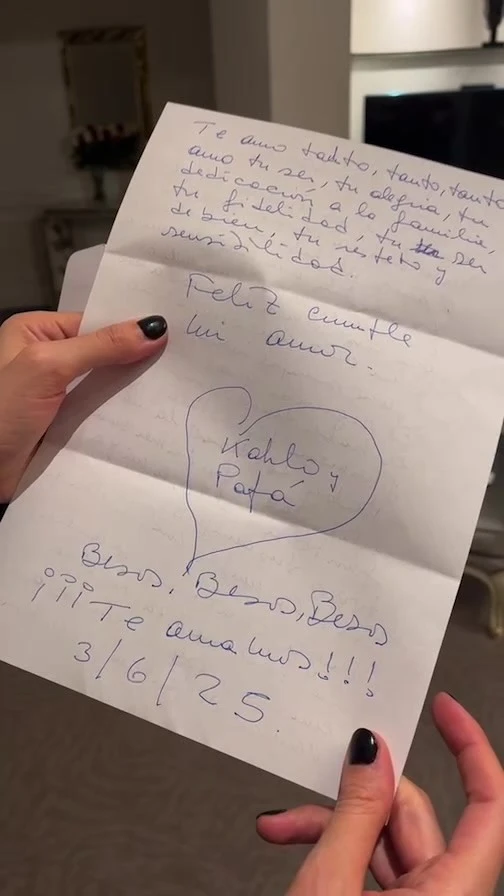 Te amo tanto, tanto, tanto
amo tu ser, tu alegria, tu
dedicación a la familia,
tu fidelidad, tu ser
de bien, tu respeto y
sensibilidad.
Feliz cumple
mi amor.
Kahlo y
Papá
Besos, Besos, Besos
¡¡¡Te amamos!!!
3/6/25.